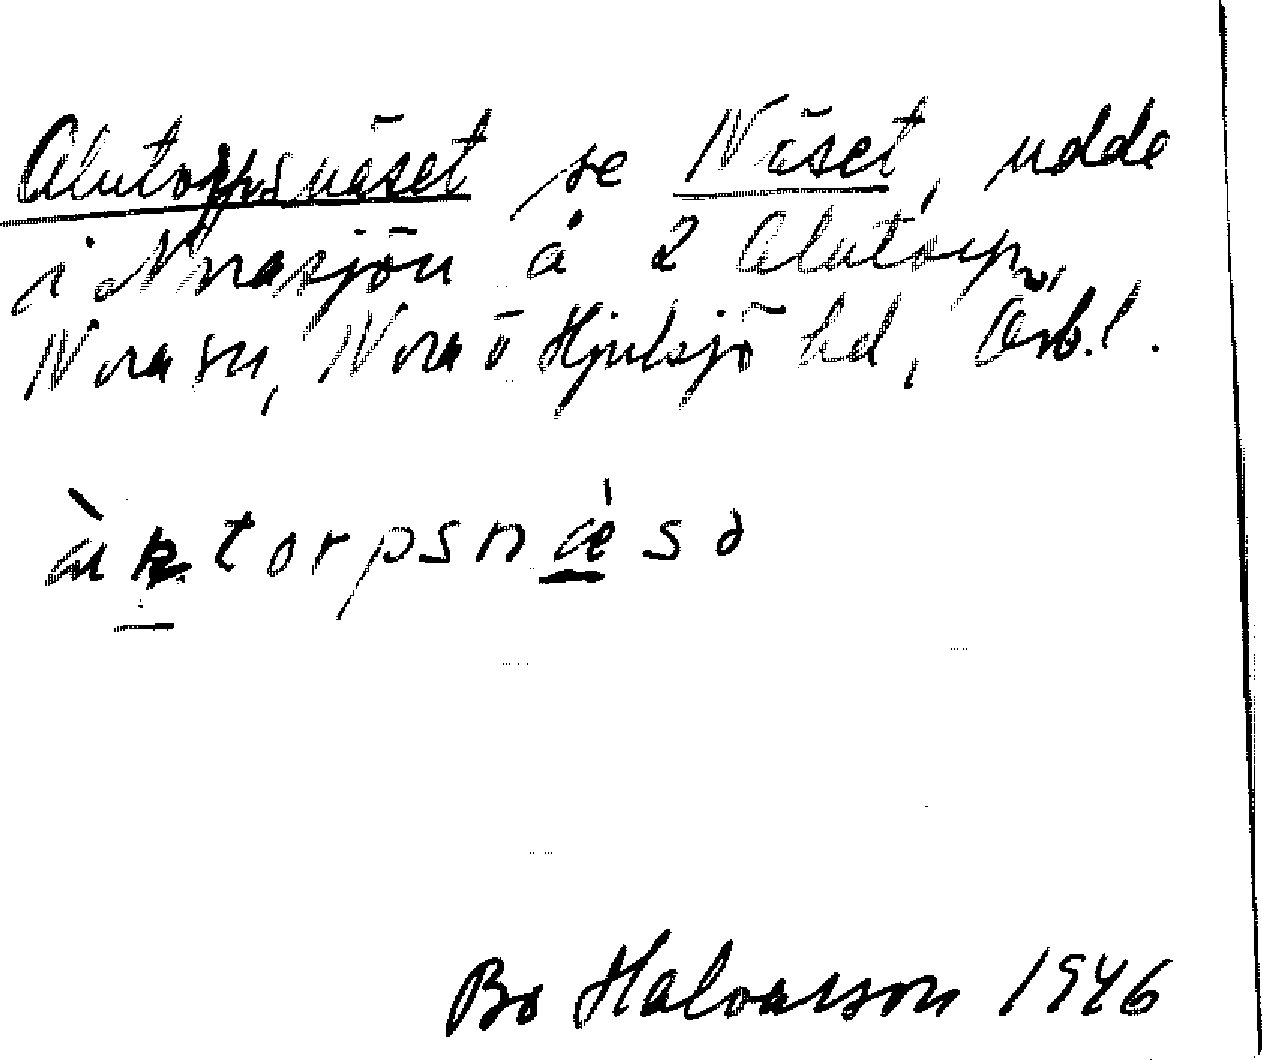 Alntorpsnäset se Näset, udde
i Norasjön å 2 Alntorp,
Nora sn, Nora o Hjulsjö hd, Örb.l.
torpsnæsə
Bo Halvarsson 1946